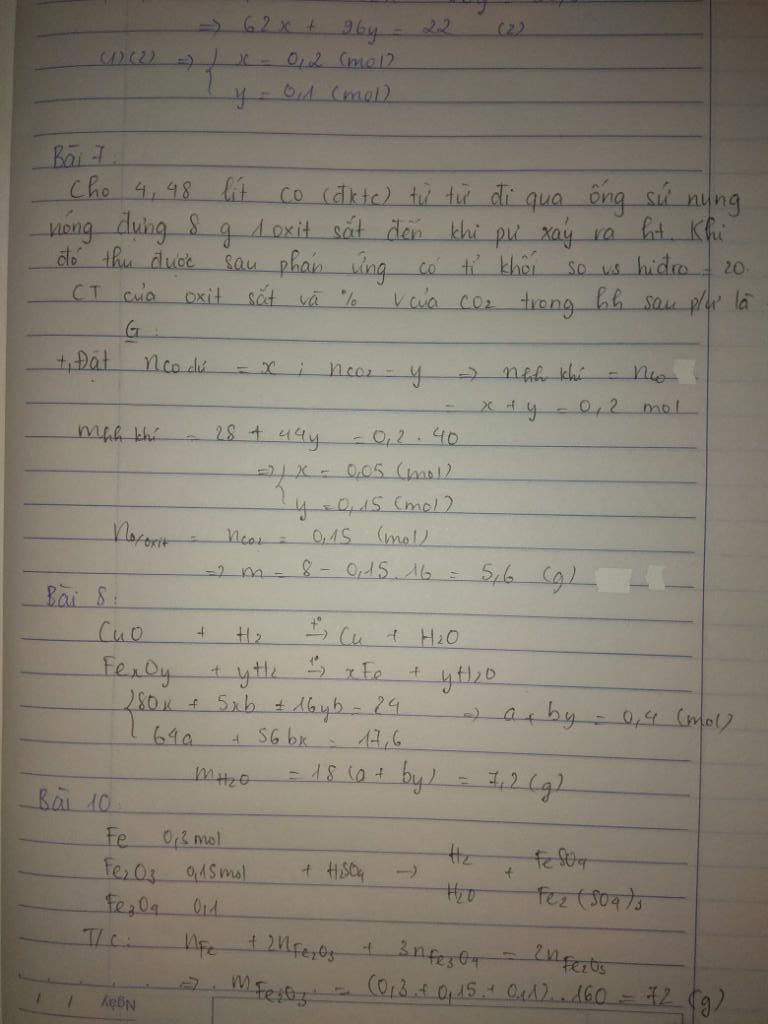 => 62x + 96y = 22 (2)
(1)(2) => { x = 0,2 (mol)
y = 0,1 (mol)
Bài 7:
Cho 4,48 lít CO (đktc) từ từ đi qua ống sứ nung
nóng đựng 8 g 1 oxit sắt đến khi pư xảy ra ht. Khi
đó thu được sau phản ứng có tỉ khối so vs hiđro = 20.
CT của oxit sắt và % V của CO2 trong hh sau p/ư là
G:
+, Đặt nCO dư = x ; nCO2 = y => nhh khí = nCO
= x + y = 0,2 mol
mhh khí = 28 + 44y = 0,2 . 40
=> { x = 0,05 (mol)
y = 0,15 (mol)
nO/oxit = nCO2 = 0,15 (mol)
=> m = 8 - 0,15 . 16 = 5,6 (g)
Bài 8:
CuO + H2 t°→ Cu + H2O
FexOy + yH2 t°→ xFe + yH2O
{ 80x + 5xb + 16yb = 24 => a + by = 0,4 (mol)
64a + 56bx = 17,6
mH2O = 18 (a + by) = 7,2 (g)
Bài 10
Fe 0,3 mol
Fe2O3 0,15 mol + H2SO4 → H2 + FeSO4
Fe3O4 0,1 H2O Fe2(SO4)3
T/c: nFe + 2nFe2O3 + 3nFe3O4 = 2nFe2O3
=> mFe3O3 = (0,3 + 0,15 + 0,1) . 160 = 72 (g)
Ngày / /